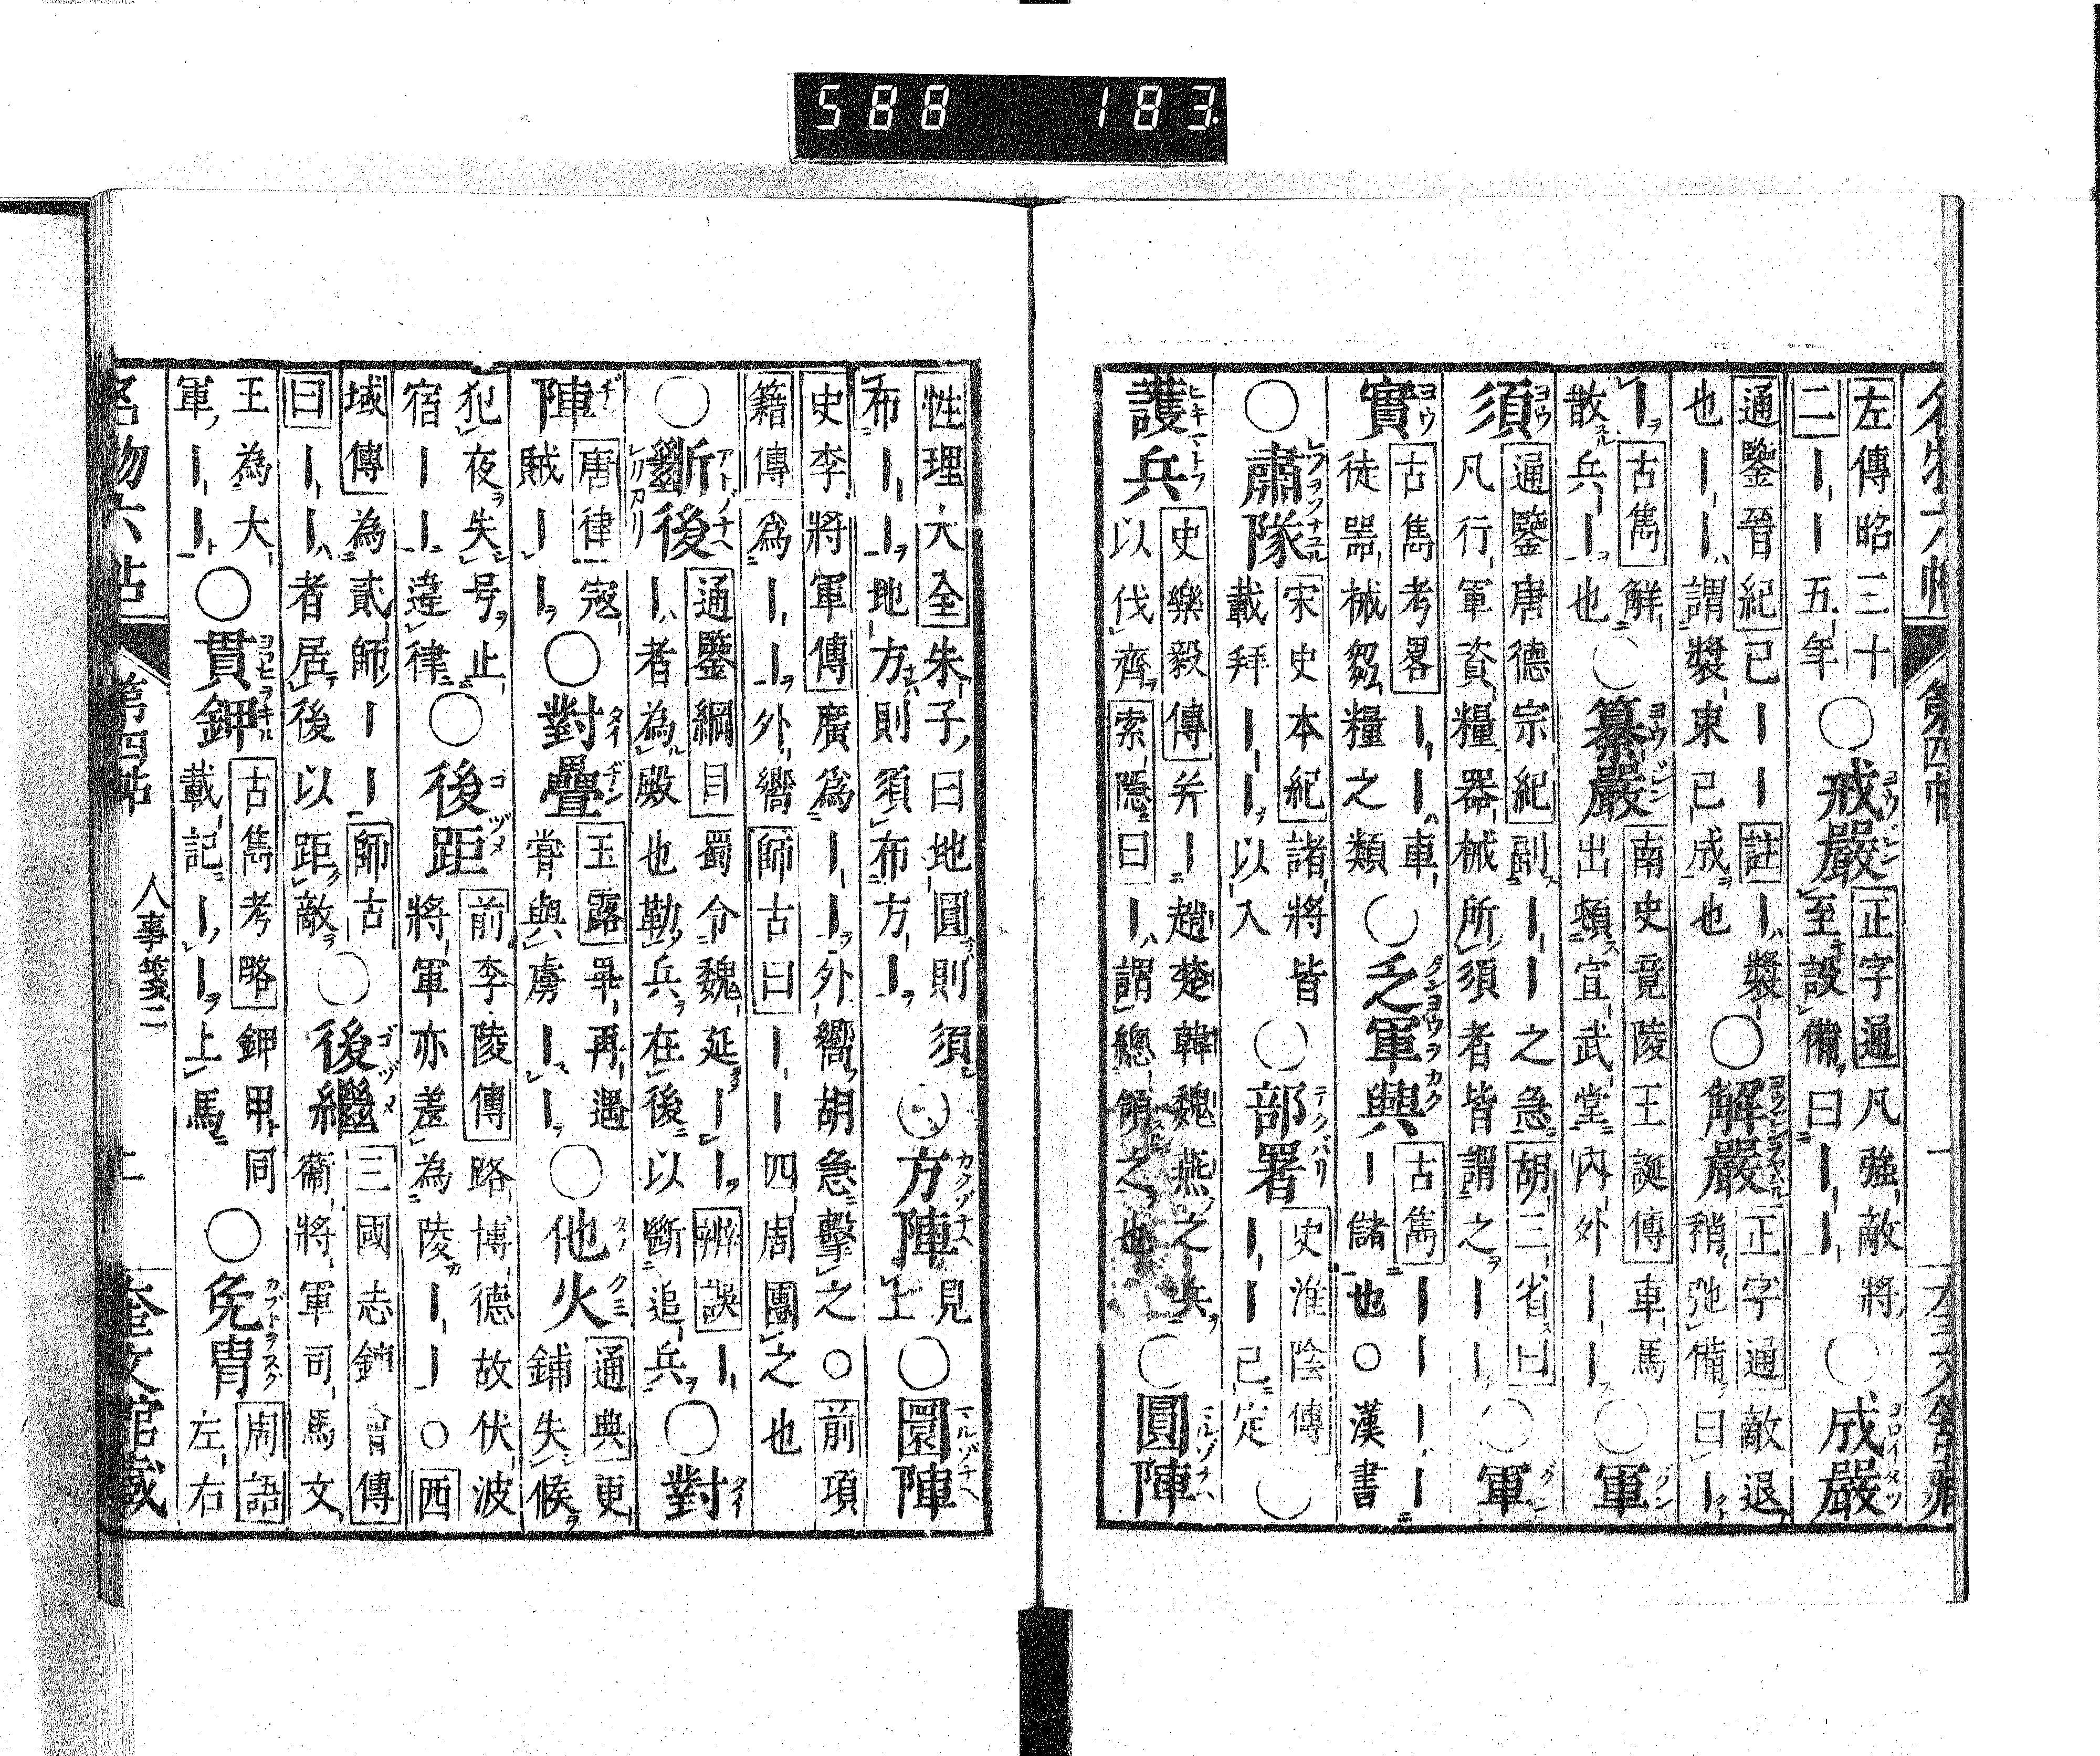 588 183.
左傳昭三十
二｜｜五年○戒嚴正字通凡強敵將
至設備曰｜｜○成嚴
通鑒晉紀已｜｜註｜裝
也｜｜謂裝束已成也○解嚴正字通敵退
稍弛備曰｜
｜古雋解
散兵｜也○纂嚴南史竟陵王誕傳車馬
出頓宣武堂內外｜｜○軍
須通鑒唐德宗紀副｜｜之急胡三省曰
凡行軍資糧器械所須者皆謂之｜｜○軍
實古雋考畧｜｜車
徒器械芻糧之類○乏軍興古雋｜｜｜｜
｜儲也○漢書
○肅隊宋史本紀諸將皆
載拜｜｜以入○部署史淮陰傳
｜｜已定○
護兵史樂毅傳并｜趙楚韓魏燕之兵
以伐齊索隱曰｜謂總領之也○圓陣
性理大全朱子曰地圓則須
布｜｜地方則須布方｜○方陣見上○圜陣
史李將軍傳廣為｜｜外嚮胡急擊之○前項
籍傳為｜｜外嚮師古曰｜｜四周團之也
○斷後通鑒綱目蜀令魏延｜｜辨誤｜
｜者為殿也勒兵在後以斷追兵○對
陣唐律寇
賊｜｜○對壘玉露畢再遇
嘗與虜｜｜○他火通典更
鋪失候
犯夜失号止
宿｜｜違律○後距前李陵傳路博德故伏波
將軍亦羞為陵｜｜○西
域傳為貳師｜｜師古
曰｜｜者居後以距敵○後繼三國志鍾會傳
衞將軍司馬文
王為大
軍｜｜○貫鉀古雋考略鉀甲同
載記｜｜上馬○免胄周語
左右
名物六帖 第四帖 人事箋二 奎文館藏